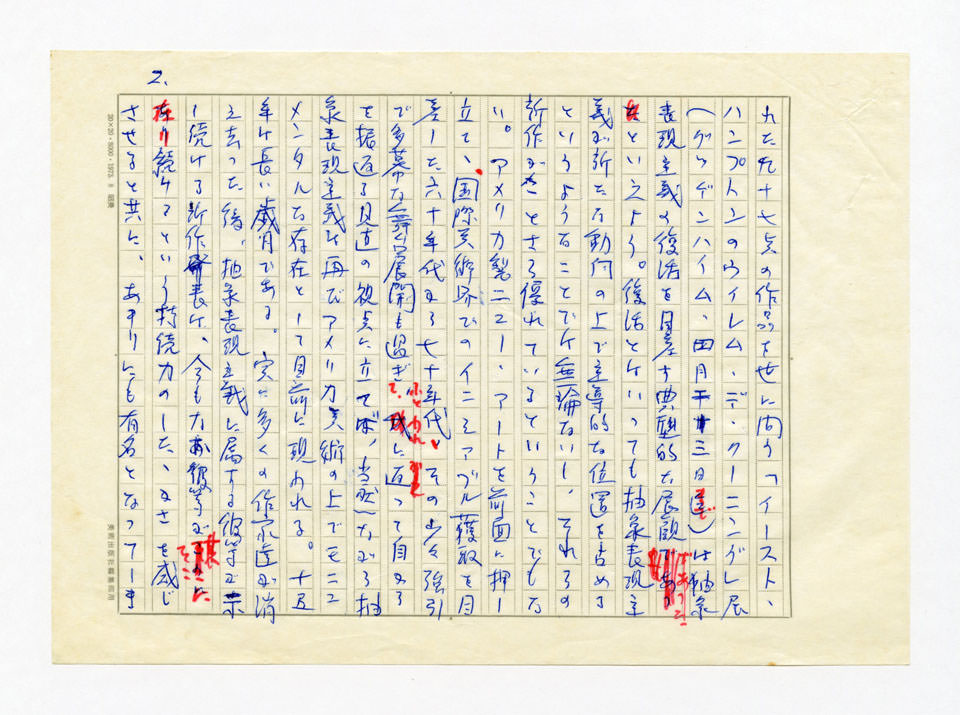 2.
れた九十七点の作品を世に問う「イースト、
ハンプトンのウイレム・デ・クーニング」展
(グッゲンハイム、四月二十三日まで)は抽象
表現主義の復活を目差す典型的な展観であった
といえよう。復活とはいっても抽象表現主
義が新たな動向の上で主導的な位置を占める
というようなことでは無論ないし、それらの
新作がことさら優れているということでもな
い。アメリカ製ニュー、アートを前面に押し
立て、国際美術界でのイニシアブル獲取を目
差した六十年代から七十年代、その少々強引
で多事な舞台展開も過ぎて、少しわれに返って自から
を振返る見直の視点に立てば、当然ながら抽
象表現主義は再びアメリカ美術の上でモニュ
メンタルな存在として目前に現われる。十五
年は長い歳月である。実に多くの作家達が消
え去った後、抽象表現主義に属する彼等が示
し続ける新作発表は、今もなお彼等が其そこに
在り続けるという持続力のしたたかさを感じ
させると共に、あまりにも有名となってしま
20×20・8000・1973. 8 昭廣
美術出版社編集部用